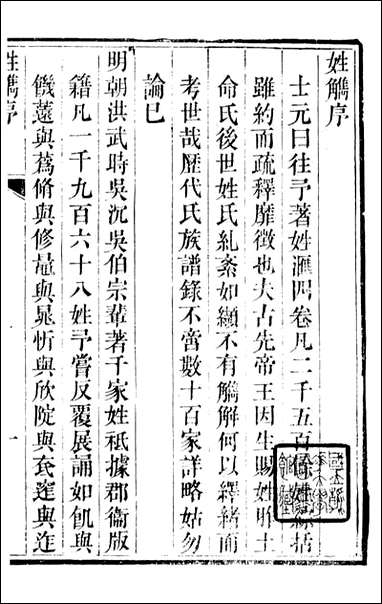 姓觿序
士元曰往予著姓滙四卷凡二千五百餘姓綜括
雖約而疏釋靡徵也夫古先帝王因生賜姓胙土
命氏後世姓氏糺紊如纈不有觿解何以繹緒而
考世哉歷代氏族譜錄不啻數十百家詳略姑勿
論已
明朝洪武時吳沉吳伯宗輩著千家姓祇據郡衞版
籍凡一千九百六十八姓予嘗反覆展誦如飢與
饑薳與蔿脩與修㬪與晁忻與欣院與
姓觿序
一